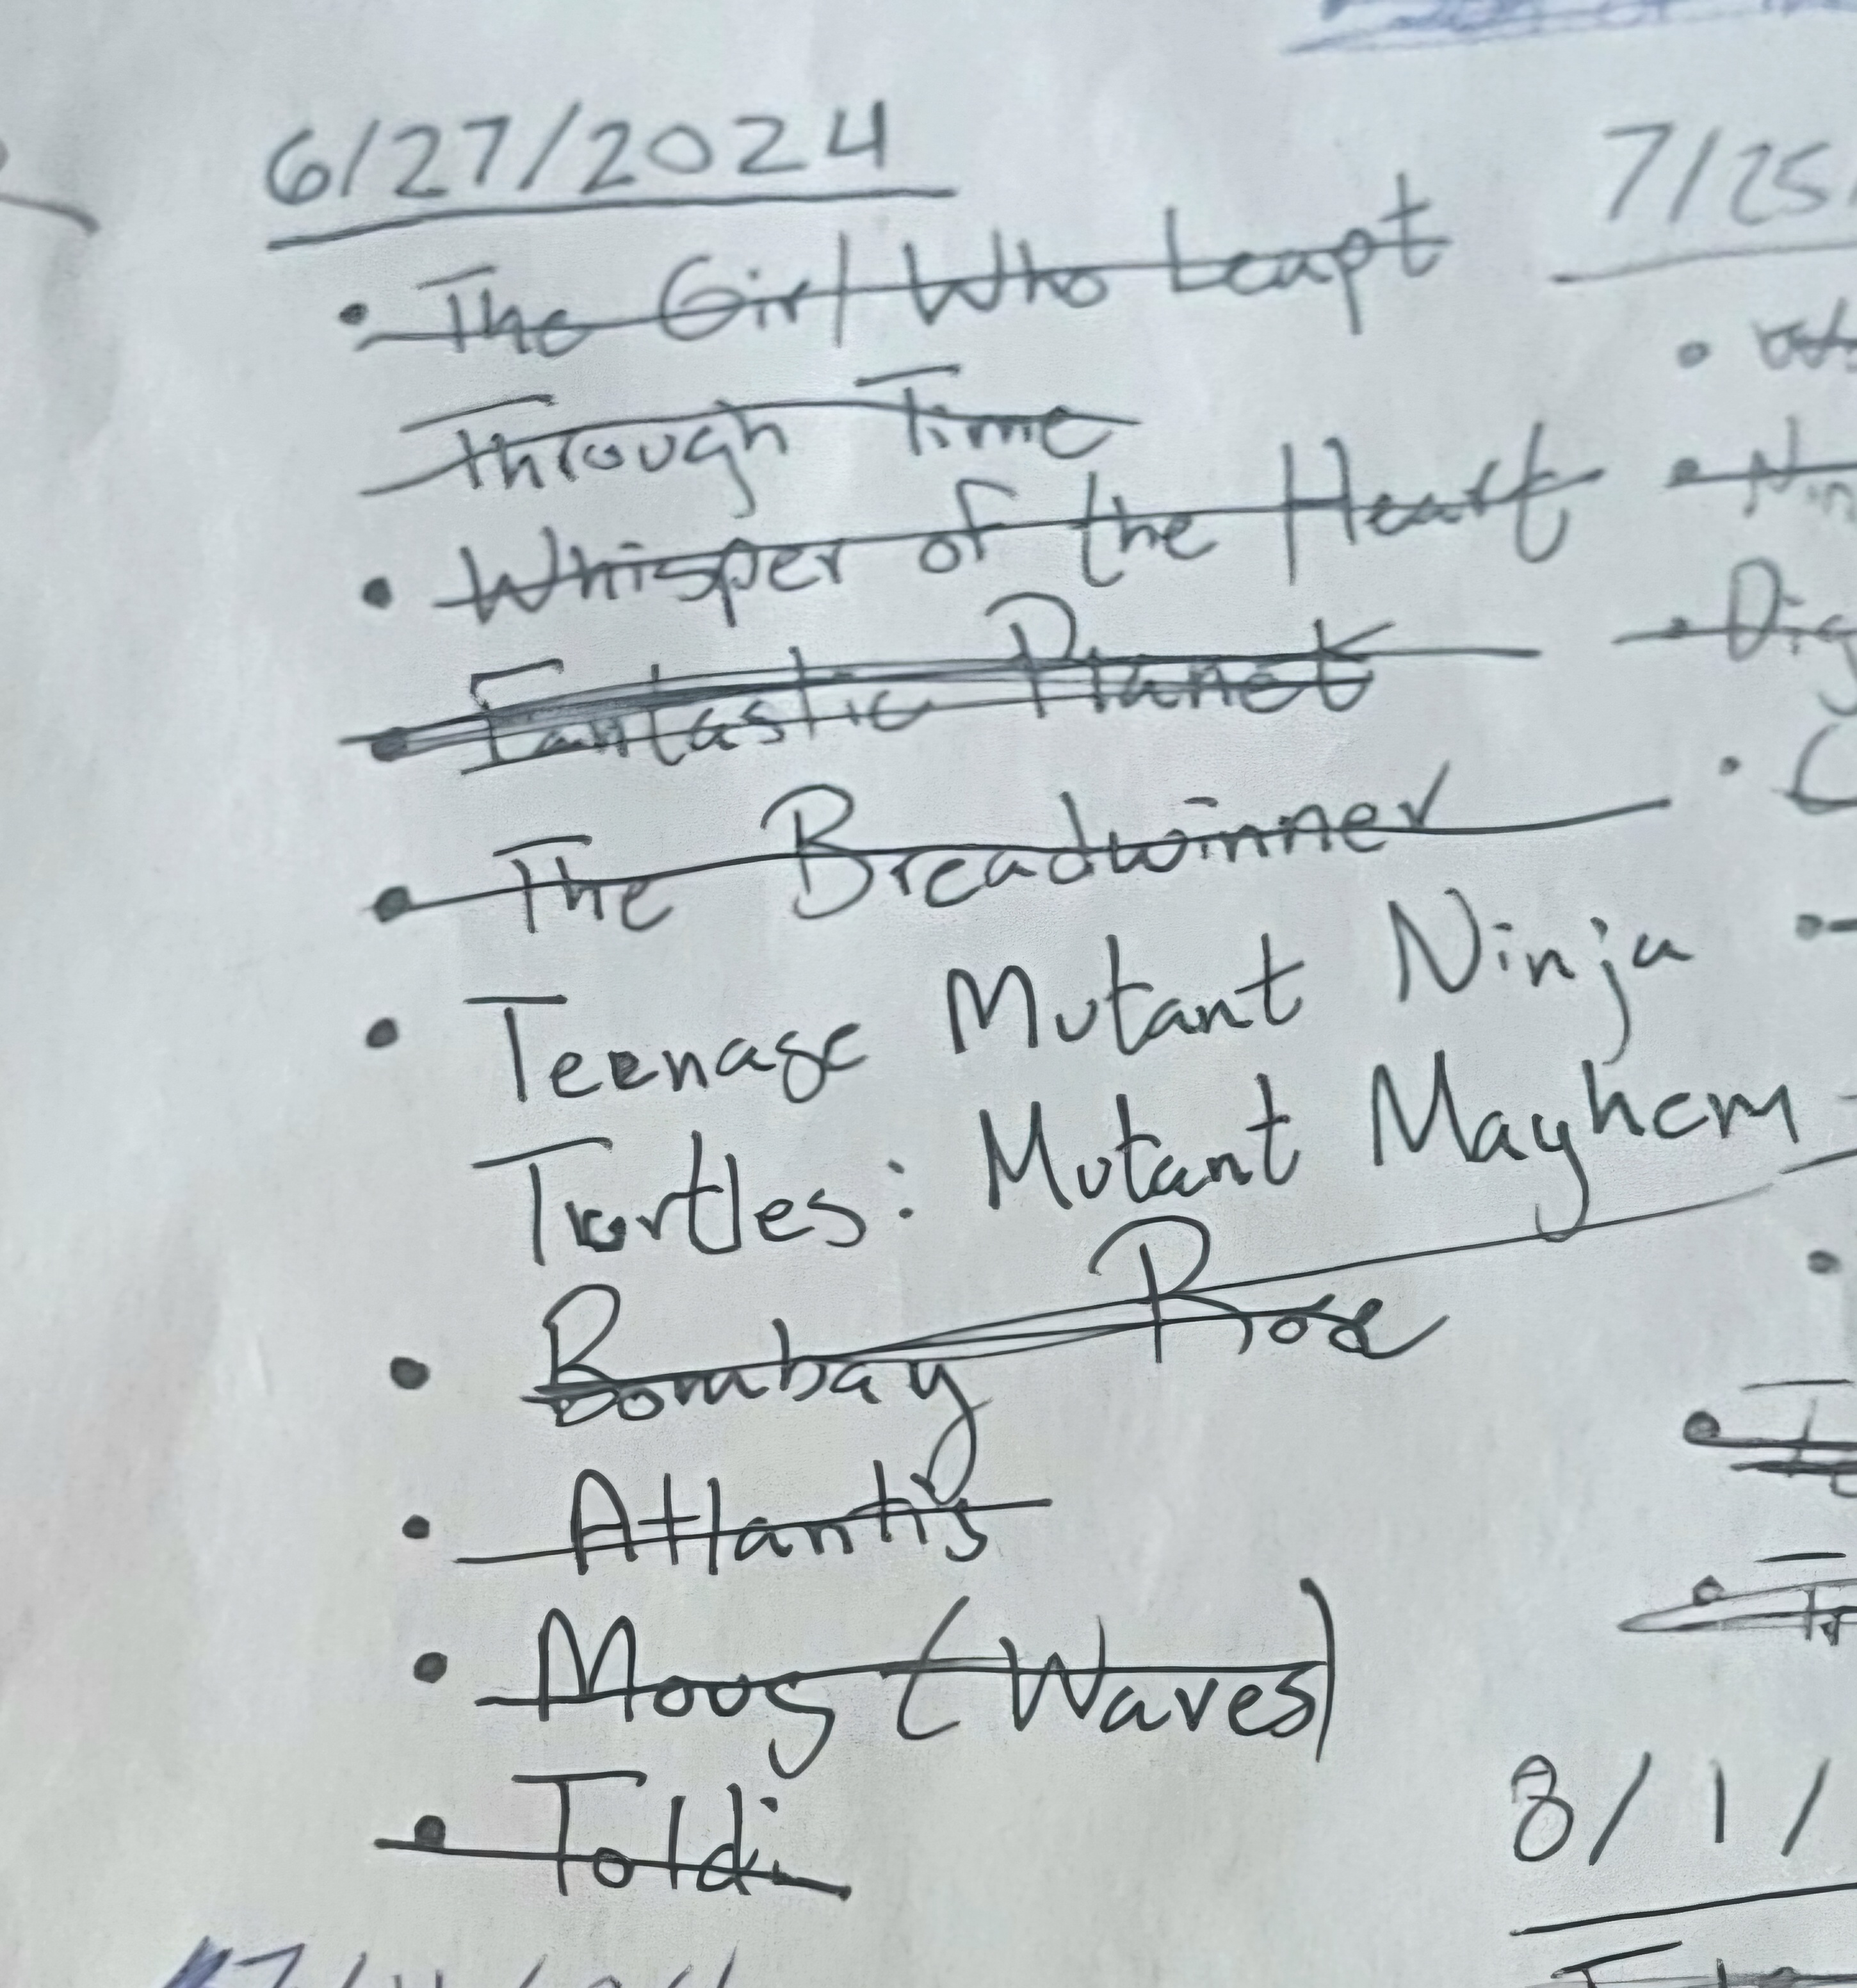 6/27/2024
• The Girl Who Leapt
Through Time
• Whisper of the Heart
• Fantastic Planet
• The Breadwinner
• Teenage Mutant Ninja
Turtles: Mutant Mayhem
• Bombay Rose
• Atlantis
• Moug (Waves)
• Toldi
7/25
8/1/